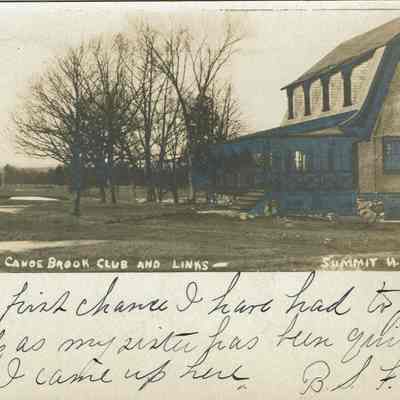 Canoe Brook Club and Links — Summit N.
first chance I have had to
as my sister has been qui
I came up here. B.S.F.